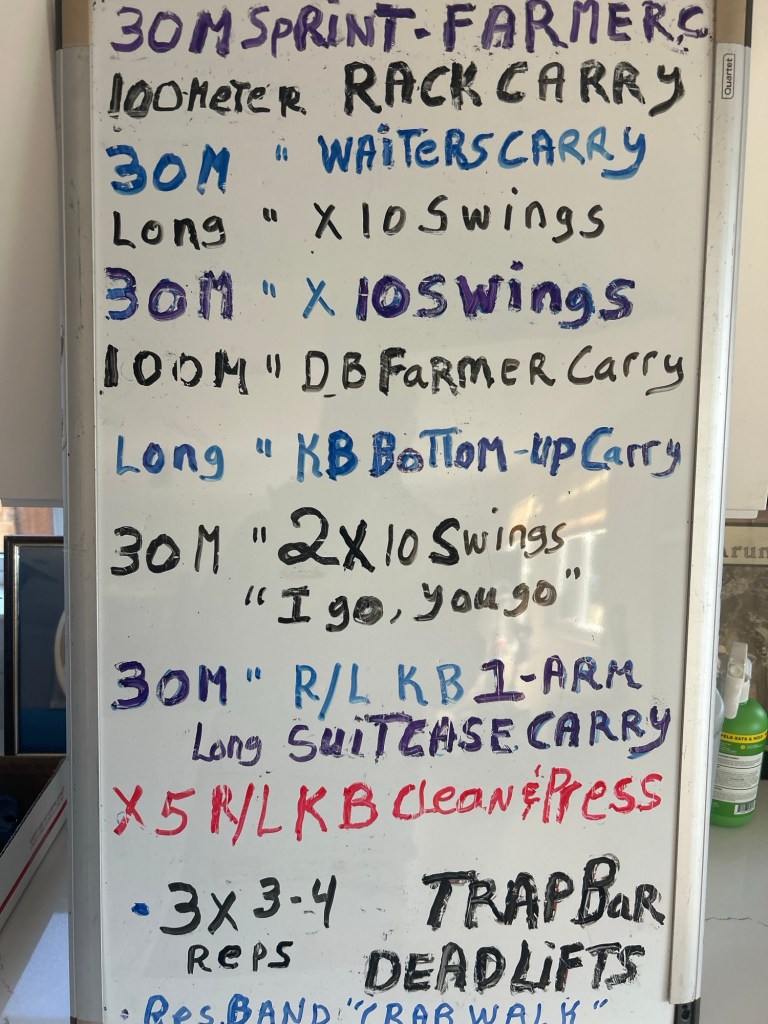 30M SPRINT - FARMERS
100 METER RACK CARRY
30M " WAITERS CARRY
Long " X 10 Swings
30M " X 10 Swings
100M " DB FARMER Carry
Long " KB BOTTOM-UP Carry
30M " 2X10 Swings
"I go, you go"
30M " R/L KB 1-ARM
Long SUITCASE CARRY
X5 R/L KB Clean & Press
• 3X 3-4 TRAP BaR
Reps DEADLiFTS
• Res. BAND "CRAB WALK"
Quartet